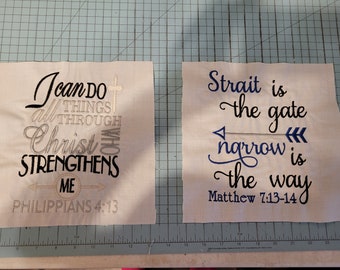 I can DO
all THINGS
THROUGH
Christ WHO
STRENGTHENS
ME
PHILIPPIANS 4:13
Strait is
the gate
narrow is
the way
Matthew 7:13-14